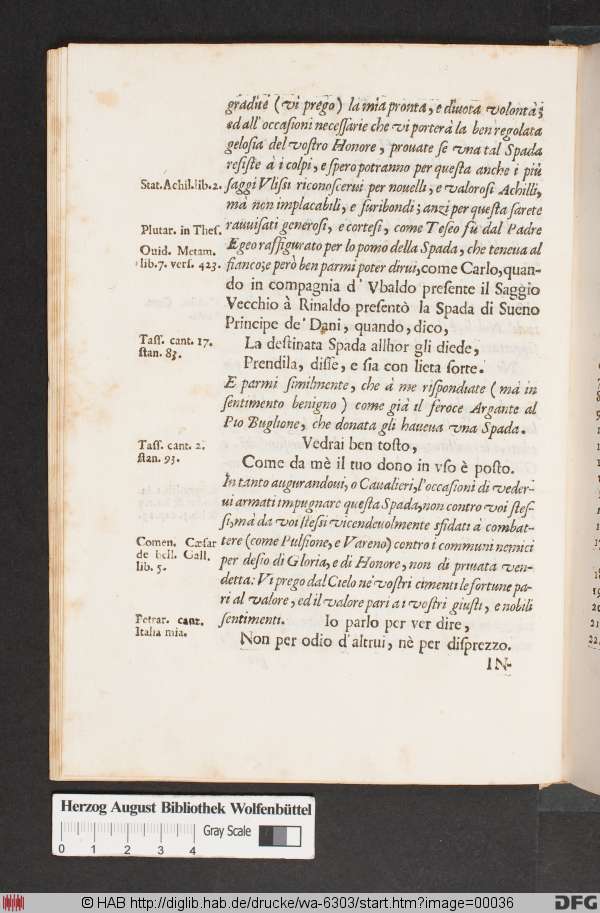 gradite (vi prego) la mia pronta, e diuota volontà;
ed all'occasioni necessarie che vi porterà la ben regolata
gelosia del vostro Honore, prouate se vna tal Spada
resiste à i colpi, e spero potranno per questa anche i più
Stat. Achil. lib. 2. saggi Vlissi riconoscerui per nouelli, e valorosi Achilli,
mà non implacabili, e furibondi; anzi per questa sarete
Plutar. in Thes. rauuisati generosi, e cortesi, come Teseo fù dal Padre
Ouid. Metam. Egeo raffigurato per lo pomo della Spada, che teneua al
lib. 7. vers. 423. fianco; e però ben parmi poter dirui, come Carlo, quan-
do in compagnia d'Vbaldo presente il Saggio
Vecchio à Rinaldo presentò la Spada di Sueno
Principe de' Dani, quando, dico,
Tass. cant. 17. La destinata Spada allhor gli diede,
stan. 83. Prendila, disse, e sia con lieta sorte.
E parmi similmente, che à me rispondiate (mà in
sentimento benigno) come già il feroce Argante al
Pio Buglione, che donata gli haueua vna Spada.
Tass. cant. 2. Vedrai ben tosto,
stan. 93. Come da mè il tuo dono in vso è posto.
In tanto augurandoui, o Caualieri, l'occasioni di veder-
ui armati impugnare questa Spada, non contro voi stes-
si, mà da voi stessi vicendeuolmente sfidati à combat-
Comen. Cæsar tere (come Pulfione, e Vareno) contro i communi nemici
de bell. Gall. per desio di Gloria, e di Honore, non di priuata ven-
lib. 5. detta: Vi prego dal Cielo ne' vostri cimenti le fortune pa-
ri al valore, ed il valore pari a i vostri giusti, e nobili
Petrar. canz. sentimenti. Io parlo per ver dire,
Italia mia. Non per odio d'altrui, nè per disprezzo.
IN-
Herzog August Bibliothek Wolfenbüttel
Gray Scale
0 1 2 3 4
© HAB http://diglib.hab.de/drucke/wa-6303/start.htm?image=00036
DFG